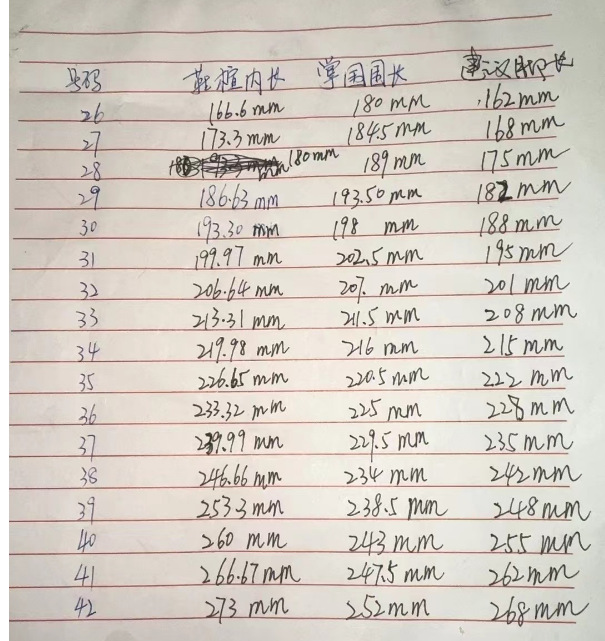 号码 鞋楦内长 掌围围长 建议脚长
26 166.6mm 180mm 162mm
27 173.3mm 184.5mm 168mm
28 180mm 189mm 175mm
29 186.63mm 193.50mm 182mm
30 193.30mm 198 mm 188mm
31 199.97 mm 202.5mm 195mm
32 206.64 mm 207. mm 201 mm
33 213.31 mm 211.5 mm 208mm
34 219.98 mm 216 mm 215mm
35 226.65mm 220.5mm 222 mm
36 233.32 mm 225 mm 228mm
37 239.99 mm 229.5mm 235mm
38 246.66 mm 234 mm 242mm
39 253.3mm 238.5 mm 248mm
40 260 mm 243mm 255 mm
41 266.67mm 247.5mm 262mm
42 273 mm 252mm 268mm